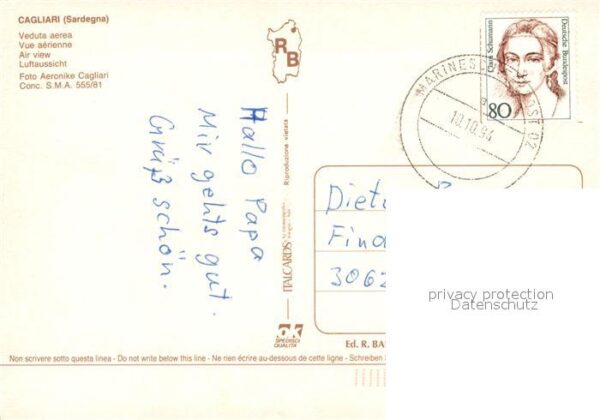 CAGLIARI (Sardegna)
Veduta aerea
Vue aérienne
Air view
Luftaussicht
Foto Aeronike Cagliari
Conc. S.M.A. 555/81
R
B
Riproduzione vietata
ITALCARDS
Hallo Papa
Mir gehts gut.
Gruß schön.
ok
SPEDISCI
QUALITÀ
Clara Schumann
Deutsche Bundespost
80
10.10.94
02
3062
Ed. R.
privacy protection
Datenschutz
Non scrivere sotto questa linea - Do not write below this line - Ne rien écrire au-dessous de cette ligne - Schreiben